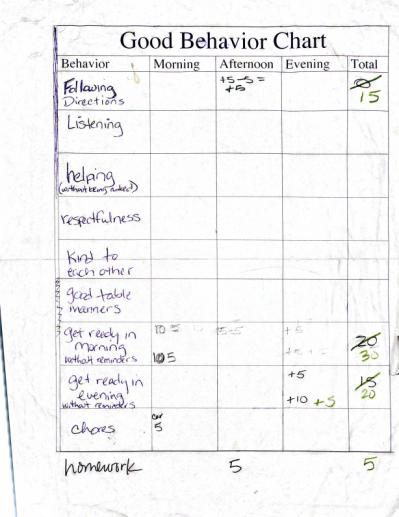 Good Behavior Chart
Behavior Morning Afternoon Evening Total
Following +5-5=
Directions +5 15
Listening
helping
(without being asked)
respectfulness
Kind to
each other
good table
manners
get ready in 10 5 5-5 +5 20
morning
without reminders 10 5 30
get ready in +5 15
evening 20
without reminders +10 +5
chores 5
homework 5 5